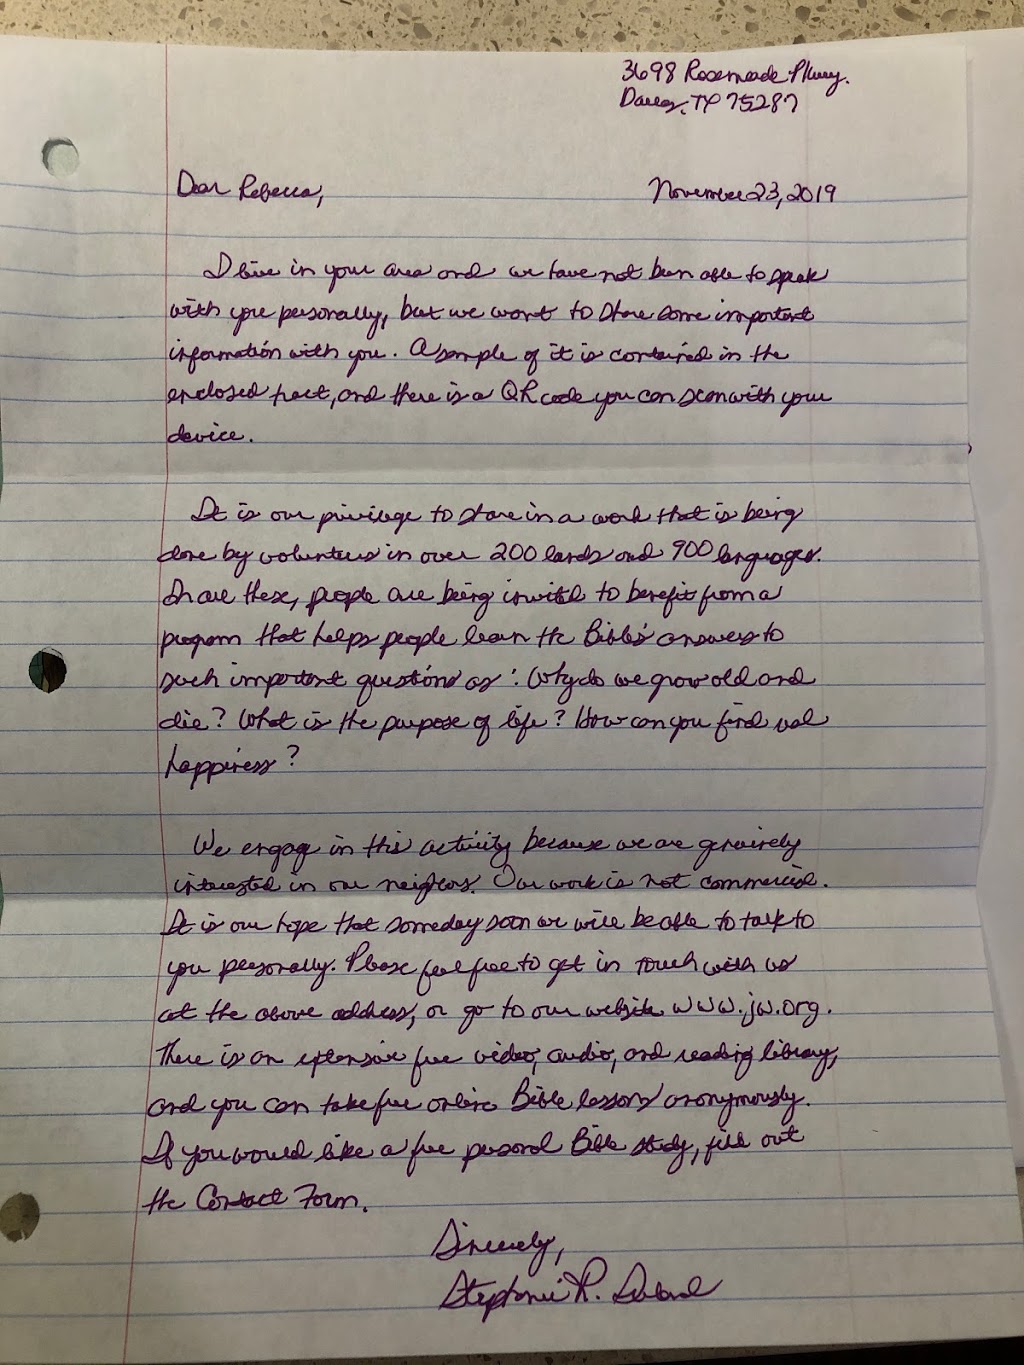 3698 Rosemeade Pkwy.
Dallas, TX 75287
Dear Rebecca,
November 23, 2019
I live in your area and we have not been able to speak
with you personally, but we want to share some important
information with you. A sample of it is contained in the
enclosed tract, and there is a QR code you can scan with your
device.
It is our privilege to share in a work that is being
done by volunteers in over 200 lands and 900 languages.
In all these, people are being invited to benefit from a
program that helps people learn the Bible's answers to
such important questions as: Why do we grow old and
die? What is the purpose of life? How can you find real
happiness?
We engage in this activity because we are genuinely
interested in our neighbors. Our work is not commercial.
It is our hope that someday soon we will be able to talk to
you personally. Please feel free to get in touch with us
at the above address, or go to our website www.jw.org.
There is an extensive free video, audio, and reading library,
and you can take free online Bible lessons anonymously.
If you would like a free personal Bible study, fill out
the Contact Form.
Sincerely,
Stephanie R.